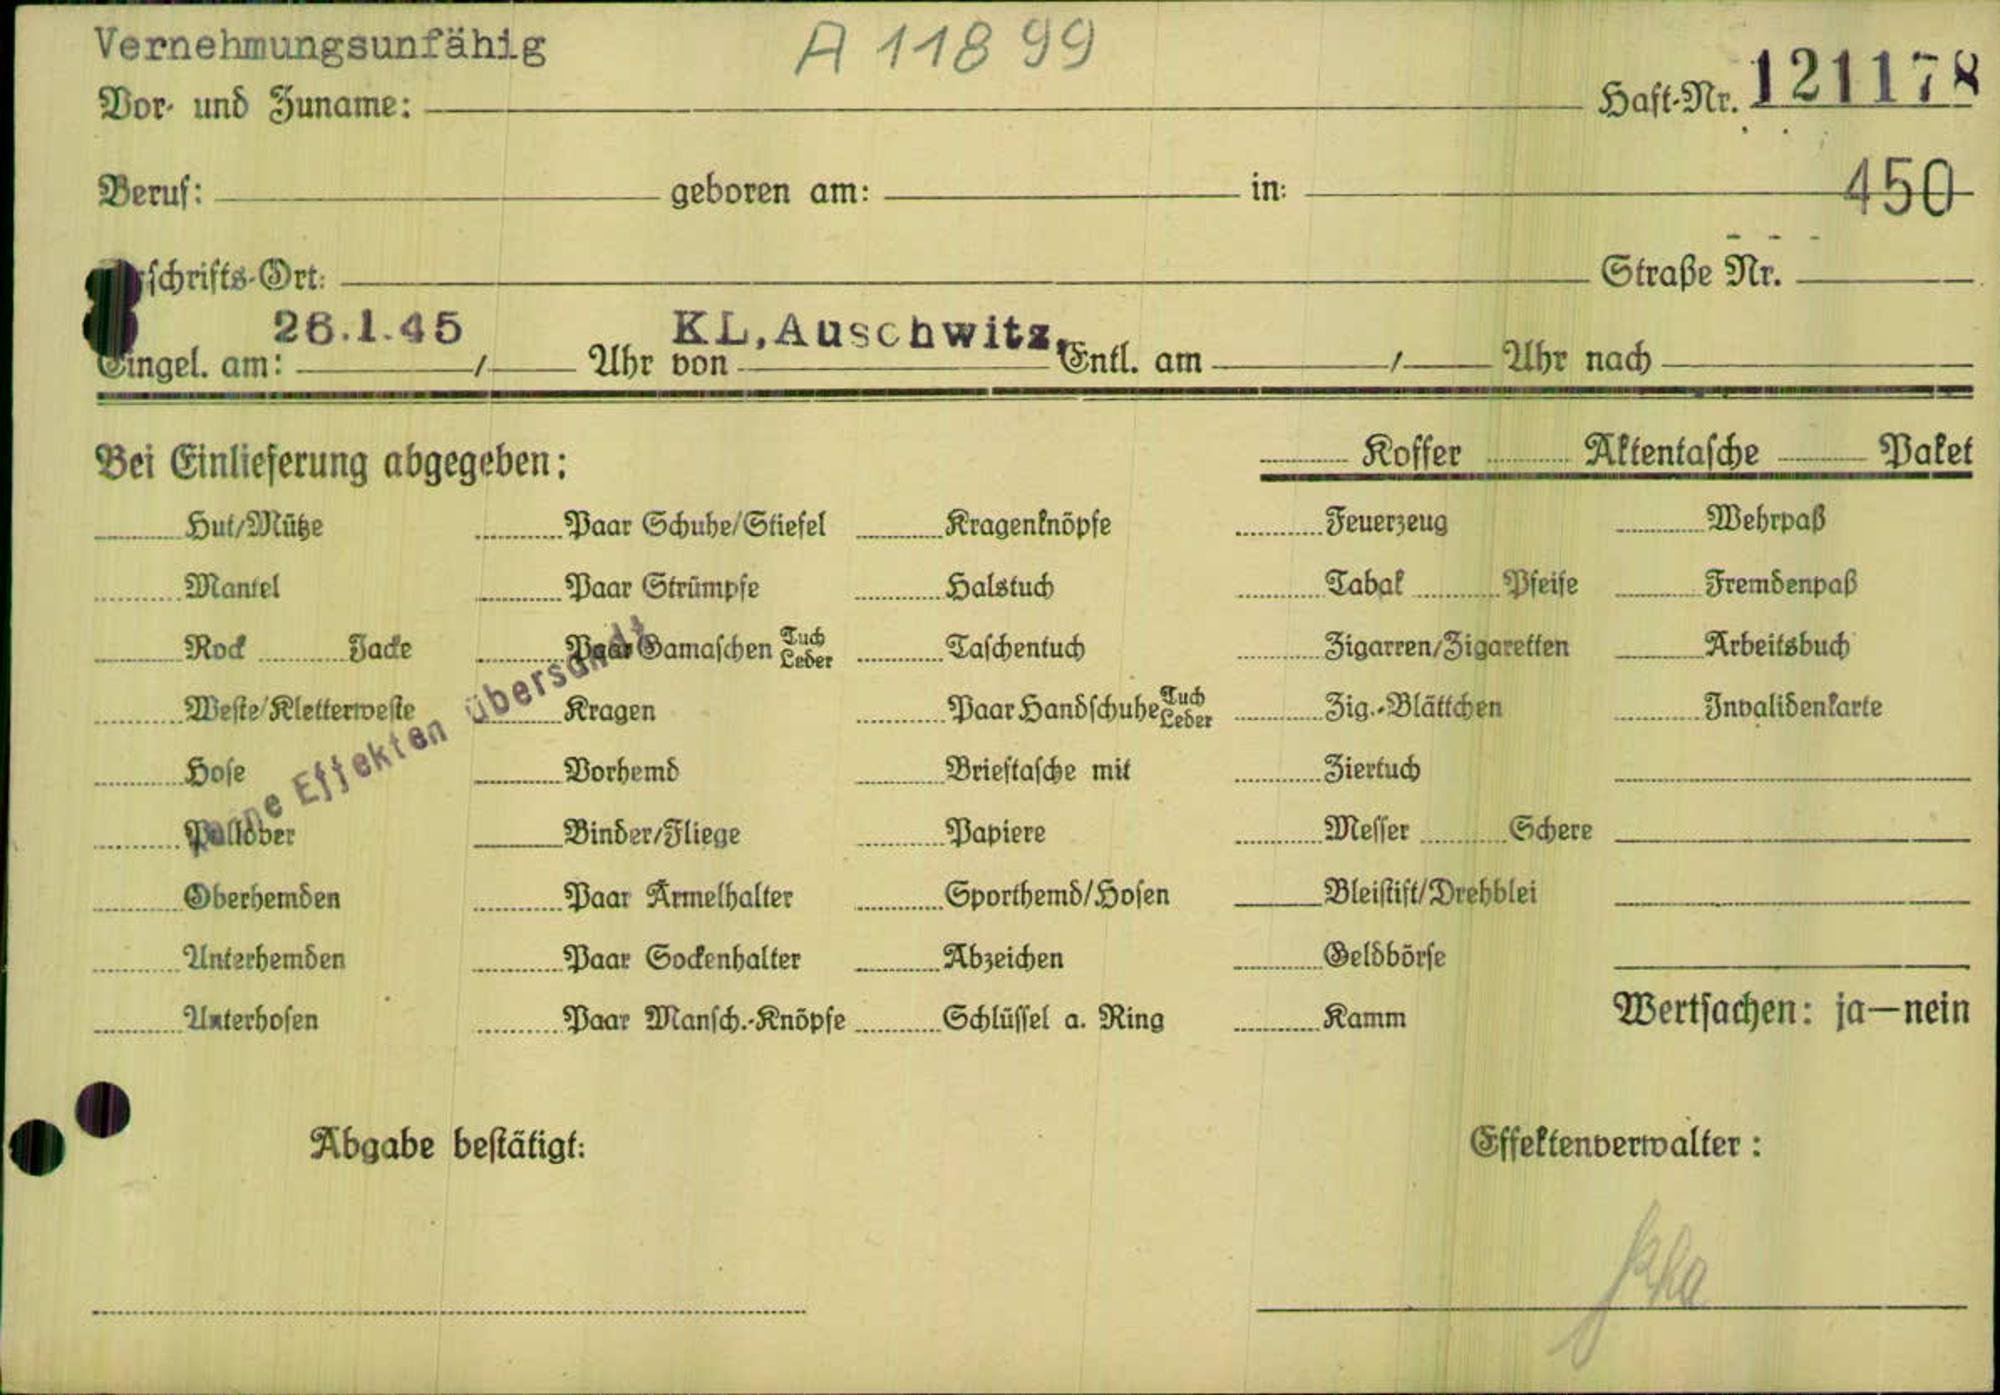 Vernehmungsunfähig A 11899
Vor- und Zuname: Haft-Nr. 121178
Beruf: geboren am: in: 450
schrifts-Ort: Straße Nr.
26.1.45 KL. Auschwitz.
Eingel. am: / Uhr von Entl. am / Uhr nach
Bei Einlieferung abgegeben: Koffer Aktentasche Paket
Hut/Mütze Paar Schuhe/Stiefel Kragenknöpfe Feuerzeug Wehrpaß
Mantel Paar Strümpfe Halstuch Tabak Pfeife Fremdenpaß
Rock Jacke Paar Gamaschen Tuch Leder Taschentuch Zigarren/Zigaretten Arbeitsbuch
Weste/Kletterweste Kragen Paar Handschuhe Tuch Leder Zig.-Blättchen Invalidenkarte
Hose Vorhemd Brieftasche mit Ziertuch
Pullover Binder/Fliege Papiere Messer Schere
Oberhemden Paar Ärmelhalter Sporthemd/Hosen Bleistift/Drehblei
Unterhemden Paar Sockenhalter Abzeichen Geldbörse
Unterhosen Paar Mansch.-Knöpfe Schlüssel a. Ring Kamm Wertsachen: ja—nein
Effekten übersandt
Abgabe bestätigt: Effektenverwalter: